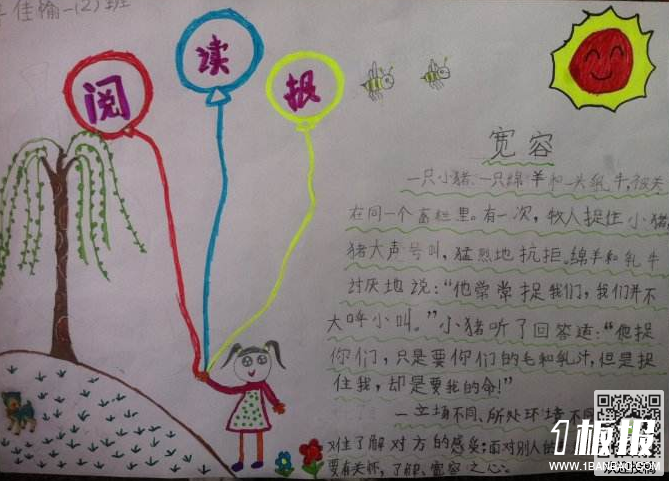 佳愉一(2)班
阅
读
报
宽容
一只小猪、一只绵羊和一头乳牛,被关
在同一个畜栏里。有一次,牧人捉住小猪,
猪大声号叫,猛烈地抗拒。绵羊和乳牛
讨厌地说:“他常常捉我们,我们并不
大呼小叫。”小猪听了回答道:“他捉
你们,只是要你们的毛和乳汁,但是捉
住我,却是要我的命!”
一立场不同、所处环境不同
对住了解对方的感受;面对别人的
要有关怀,了解、宽容之心。
板报
WWW.1BANBAO.COM